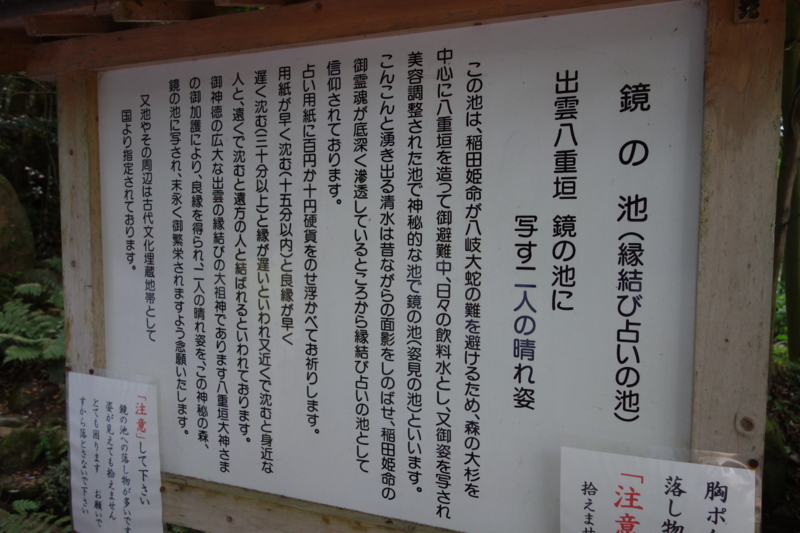 鏡の池(縁結び占いの池)
出雲八重垣 鏡の池に
写す二人の晴れ姿
この池は、稲田姫命が八岐大蛇の難を避けるため、森の大杉を
中心に八重垣を造って御避難中、日々の飲料水とし、又御姿を写され
美容調整された池で神秘的な池で鏡の池(姿見の池)といいます。
こんこんと湧き出る清水は昔ながらの面影をしのばせ、稲田姫命の
御霊魂が底深く滲透しているところから縁結び占いの池として
信仰されております。
占い用紙に百円か十円硬貨をのせ浮かべてお祈りします。
用紙が早く沈む(十五分以内)と良縁が早く
遅く沈む(三十分以上)と縁が遅いといわれ又近くで沈むと身近な
人と、遠くで沈むと遠方の人と結ばれるといわれております。
御神徳の広大な出雲の縁結びの大祖神であります八重垣大神さま
の御加護により、良縁を得られ、二人の晴れ姿を、この神秘の森、
鏡の池に写され、末永く御繁栄されますよう念願いたします。
又池やその周辺は古代文化埋蔵地帯として
国より指定されております。
「注意」して下さい
鏡の池への落し物が多いです
姿が見えても拾えません
とても困ります お願いで
すから落とさないで下さい
胸ポ
落し物
「注意
拾えませ